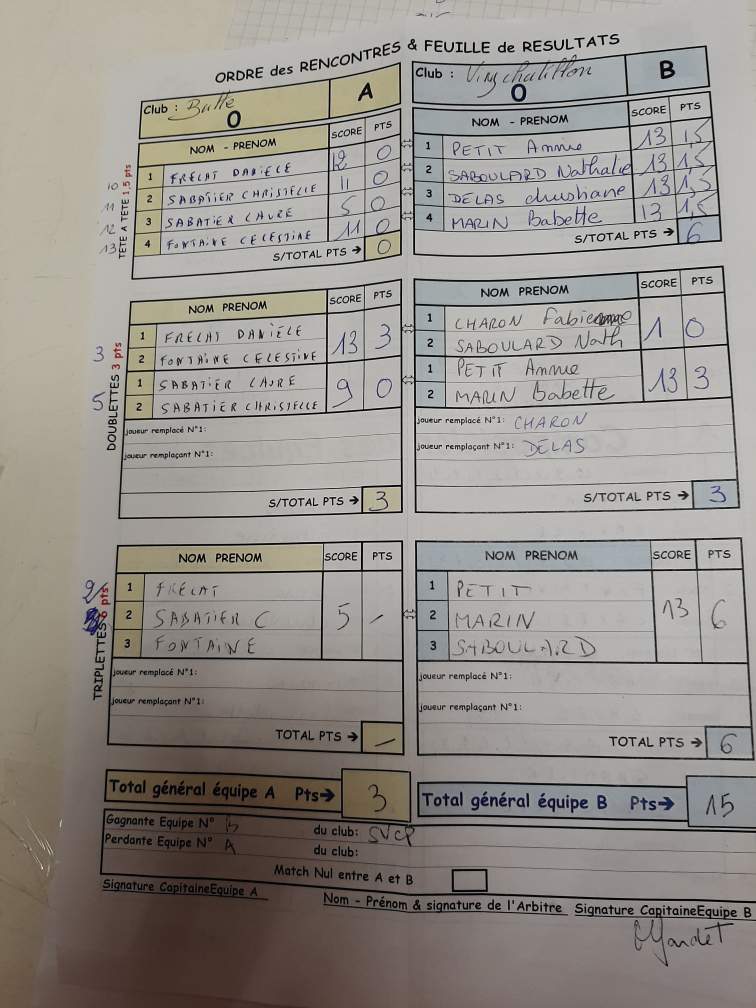 ORDRE des RENCONTRES & FEUILLE de RESULTATS
Club : Balle A
O
NOM - PRENOM SCORE PTS
1 FRELAT DANIELE 12 0
2 SABATIER CHRISTELLE 11 0
3 SABATIER LAURE 5 0
4 FONTAINE CELESTINE 11 0
S/TOTAL PTS → 0
TETE A TETE 1,5 pts
10
11
12
13
Club : Viry chatillon B
O
NOM - PRENOM SCORE PTS
1 PETIT Annie 13 1,5
2 SABOULARD Nathalie 13 1,5
3 DELAS chushane 13 1,5
4 MARIN Babette 13 1,5
S/TOTAL PTS → 6
NOM PRENOM SCORE PTS
1 FRELAT DANIELE 13 3
2 FONTAINE CELESTINE
1 SABATIER LAURE 9 0
2 SABATIER CHRISTELLE
joueur remplacé N°1:
joueur remplaçant N°1:
S/TOTAL PTS → 3
DOUBLETTES 3 pts
3
5
NOM PRENOM SCORE PTS
1 CHARON Fabienne 1 0
2 SABOULARD Nath
1 PETIT Annie 13 3
2 MARIN Babette
joueur remplacé N°1: CHARON
joueur remplaçant N°1: DELAS
S/TOTAL PTS → 3
NOM PRENOM SCORE PTS
1 FRELAT
2 SABATIER C 5 -
3 FONTAINE
joueur remplacé N°1:
joueur remplaçant N°1:
TOTAL PTS → -
TRIPLETTES 6 pts
2
NOM PRENOM SCORE PTS
1 PETIT
2 MARIN 13 6
3 SABOULARD
joueur remplacé N°1:
joueur remplaçant N°1:
TOTAL PTS → 6
Total général équipe A Pts→ 3
Total général équipe B Pts→ 15
Gagnante Equipe N° B du club: SVCP
Perdante Equipe N° A du club:
Match Nul entre A et B
Signature CapitaineEquipe A
Nom - Prénom & signature de l'Arbitre
Signature CapitaineEquipe B